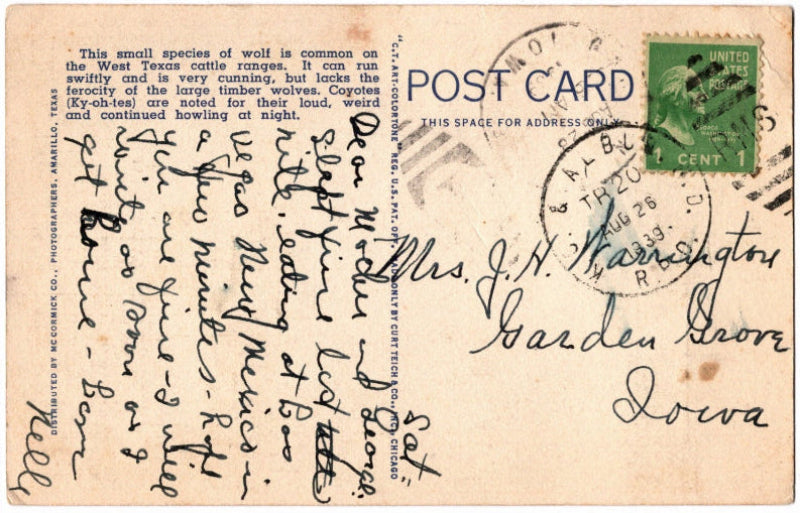 This small species of wolf is common on
the West Texas cattle ranges. It can run
swiftly and is very cunning, but lacks the
ferocity of the large timber wolves. Coyotes
(Ky-oh-tes) are noted for their loud, weird
and continued howling at night.
POST CARD
THIS SPACE FOR ADDRESS ONLY
UNITED
STATES
POSTAGE
GEORGE
WASHINGTON
1 CENT 1
K.C. & ALBUQ
TR 20
AUG 26
1939
R.P.O.
Mrs. J. H. Warrington
Garden Grove
Iowa
Sat.
Dear Mother and George:
Slept fine last
nite. eating at Las
Vegas New Mexico in
a few minutes - hope
you are fine - I will
write as soon as I
get home -
Nelly
DISTRIBUTED BY MC CORMICK CO., PHOTOGRAPHERS, AMARILLO, TEXAS
"C.T. ART-COLORTONE" REG. U.S. PAT. OFF. MADE ONLY BY CURT TEICH & CO., INC., CHICAGO